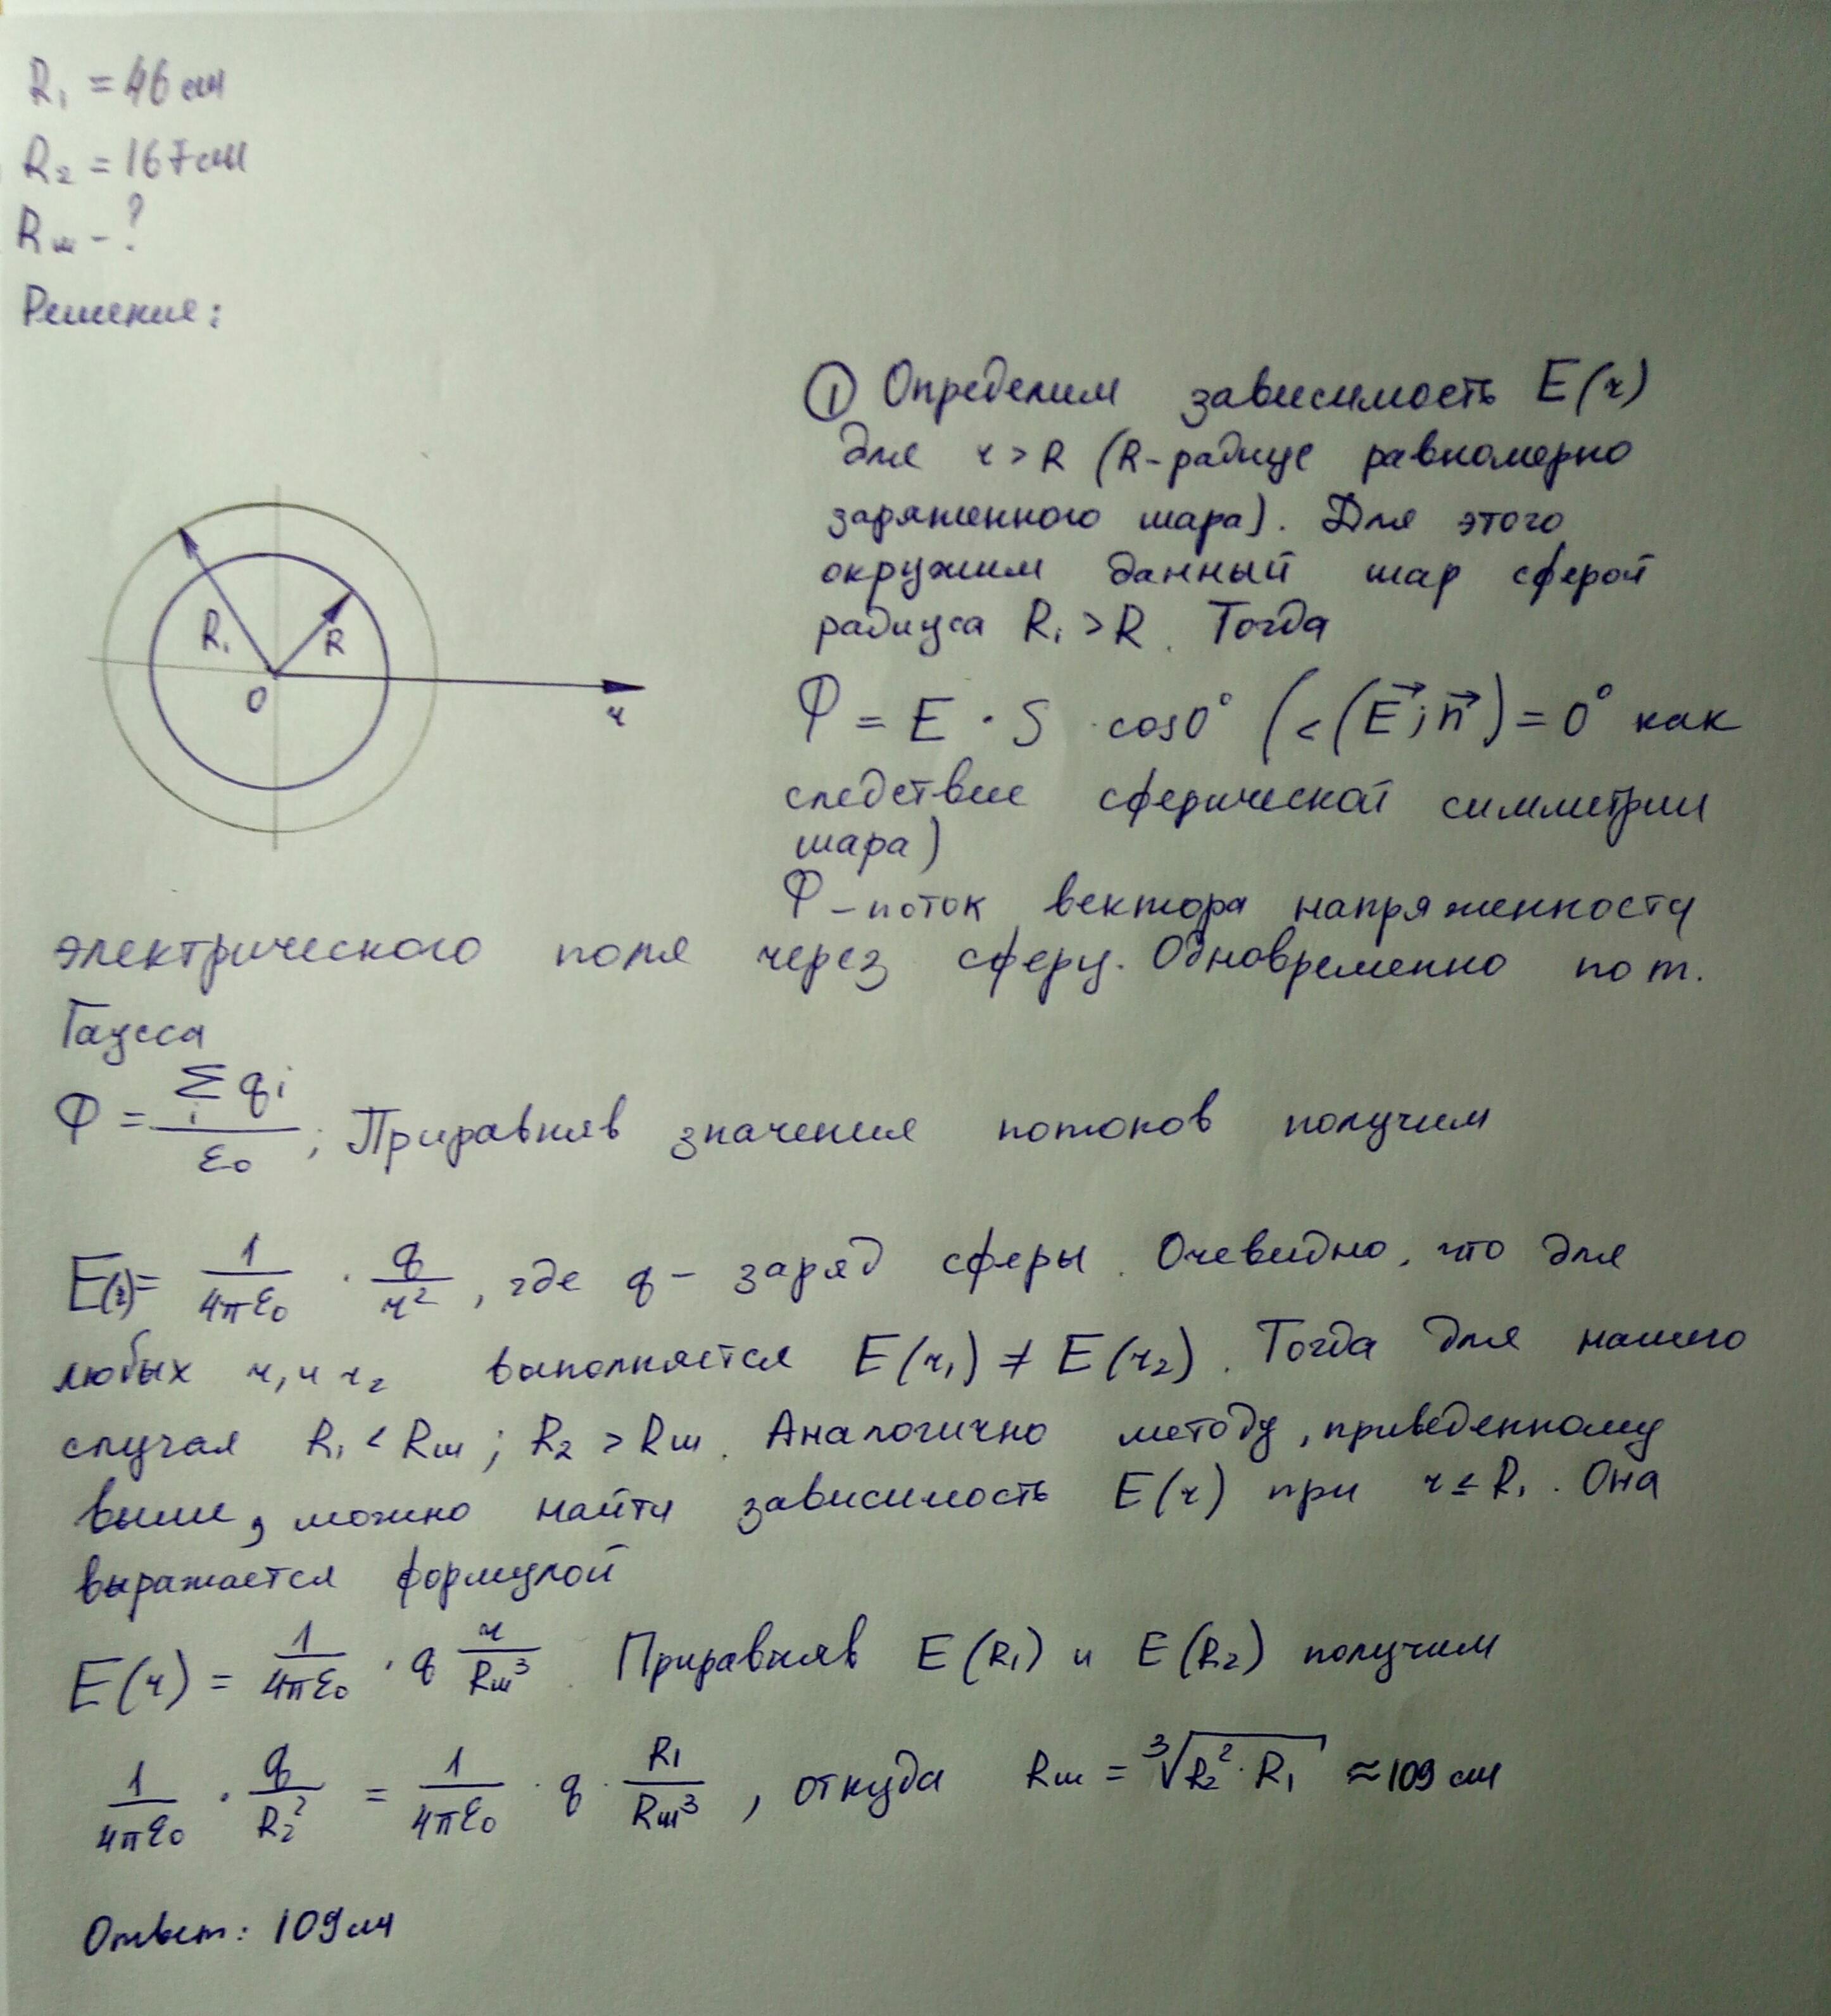 R₁ = 46 см
R₂ = 167 см
Rш - ?
Решение:
① Определим зависимость E(r)
для r > R (R - радиус равномерно
заряженного шара). Для этого
окружим данный шар сферой
радиуса R₁ > R. Тогда
R₁
R
O
r
Φ = E · S · cos0° (<(E⃗; n⃗) = 0° как
следствие сферической симметрии
шара)
Φ - поток вектора напряженности
электрического поля через сферу. Одновременно по т.
Гаусса
Φ = Σᵢ qᵢ / ε₀ ; Приравняв значения потоков получим
E(r) = 1/(4πε₀) · q/r², где q - заряд сферы. Очевидно, что для
любых r₁ и r₂ выполняется E(r₁) ≠ E(r₂). Тогда для нашего
случая R₁ < Rш ; R₂ > Rш. Аналогично методу, приведенному
выше, можно найти зависимость E(r) при r ≤ R₁. Она
выражается формулой
E(r) = 1/(4πε₀) · q r/Rш³. Приравняв E(R₁) и E(R₂) получим
1/(4πε₀) · q/R₂² = 1/(4πε₀) · q · R₁/Rш³, откуда Rш = ³√(R₂² · R₁) ≈ 109 см
Ответ: 109 см